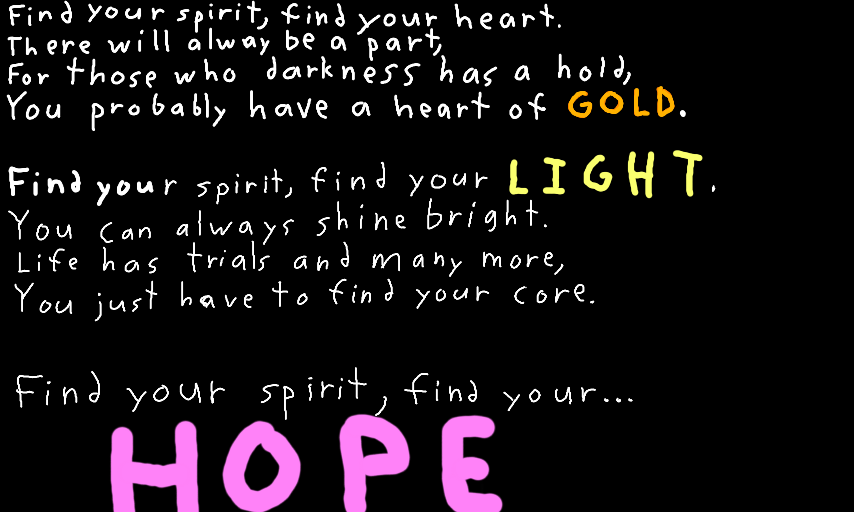 Find your spirit, find your heart.
There will alway be a part,
For those who darkness has a hold,
You probably have a heart of GOLD.
Find your spirit, find your LIGHT.
You can always shine bright.
Life has trials and many more,
You just have to find your core.
Find your spirit, find your...
HOPE